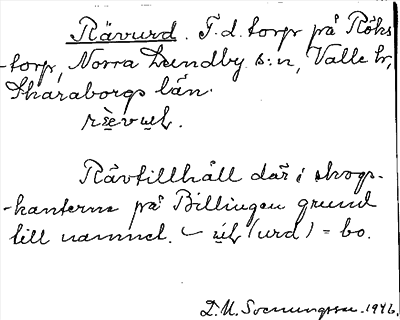 Rävurd. F.d. torp på Röks-
torp, Norra Lundby s:n, Valle hd,
Skaraborgs län.

Rävtillhåll där i skogs-
-kanterna på Billingen grund
till namnet. (urd) = bo.
D.A. Svenungsson. 1946.